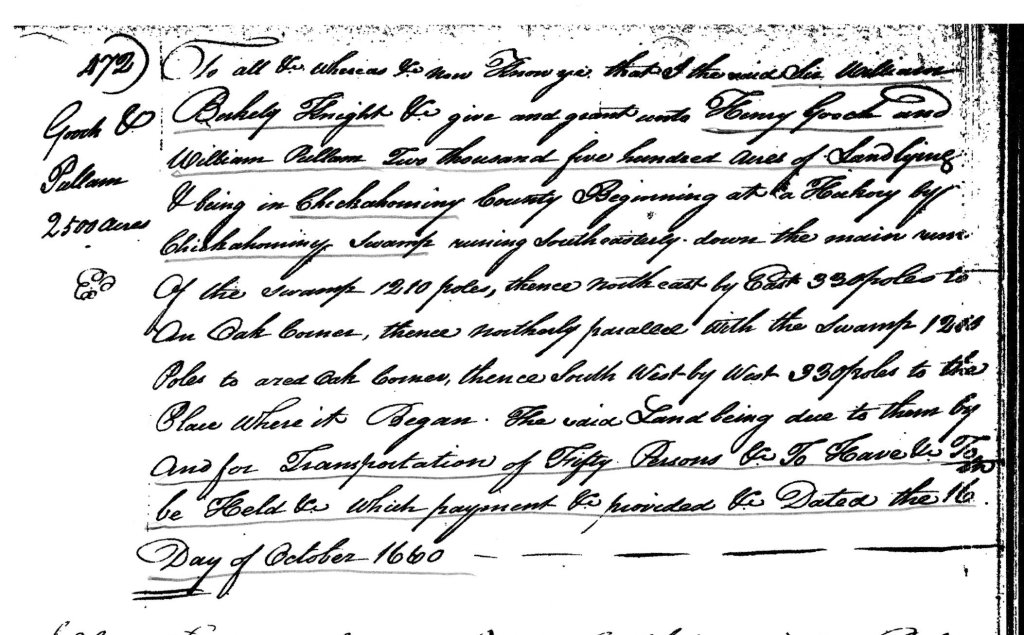 472)
Gooch &
Pullam
2500 acres
Ex
To all &c whereas &c now Know ye that I the said Sir William
Berkely Knight &c give and grant unto Henry Gooch and
William Pullam Two thousand five hundred acres of Land lying
& being in Chickahominy County Beginning at a Hickory by
Chickahominy Swamp runing Southeasterly down the main run
Of the swamp 1210 poles, thence north east by East 330 poles to
An Oak Corner, thence northerly parallel with the swamp
Poles to a red Oak Corner, thence South West by West 330 poles to the
Place Where it Began. The said Land being due to them by
And for Transportation of Fifty Persons &c To Have &c To
be Held &c Which payment &c provided &c Dated the 16
Day of October 1660